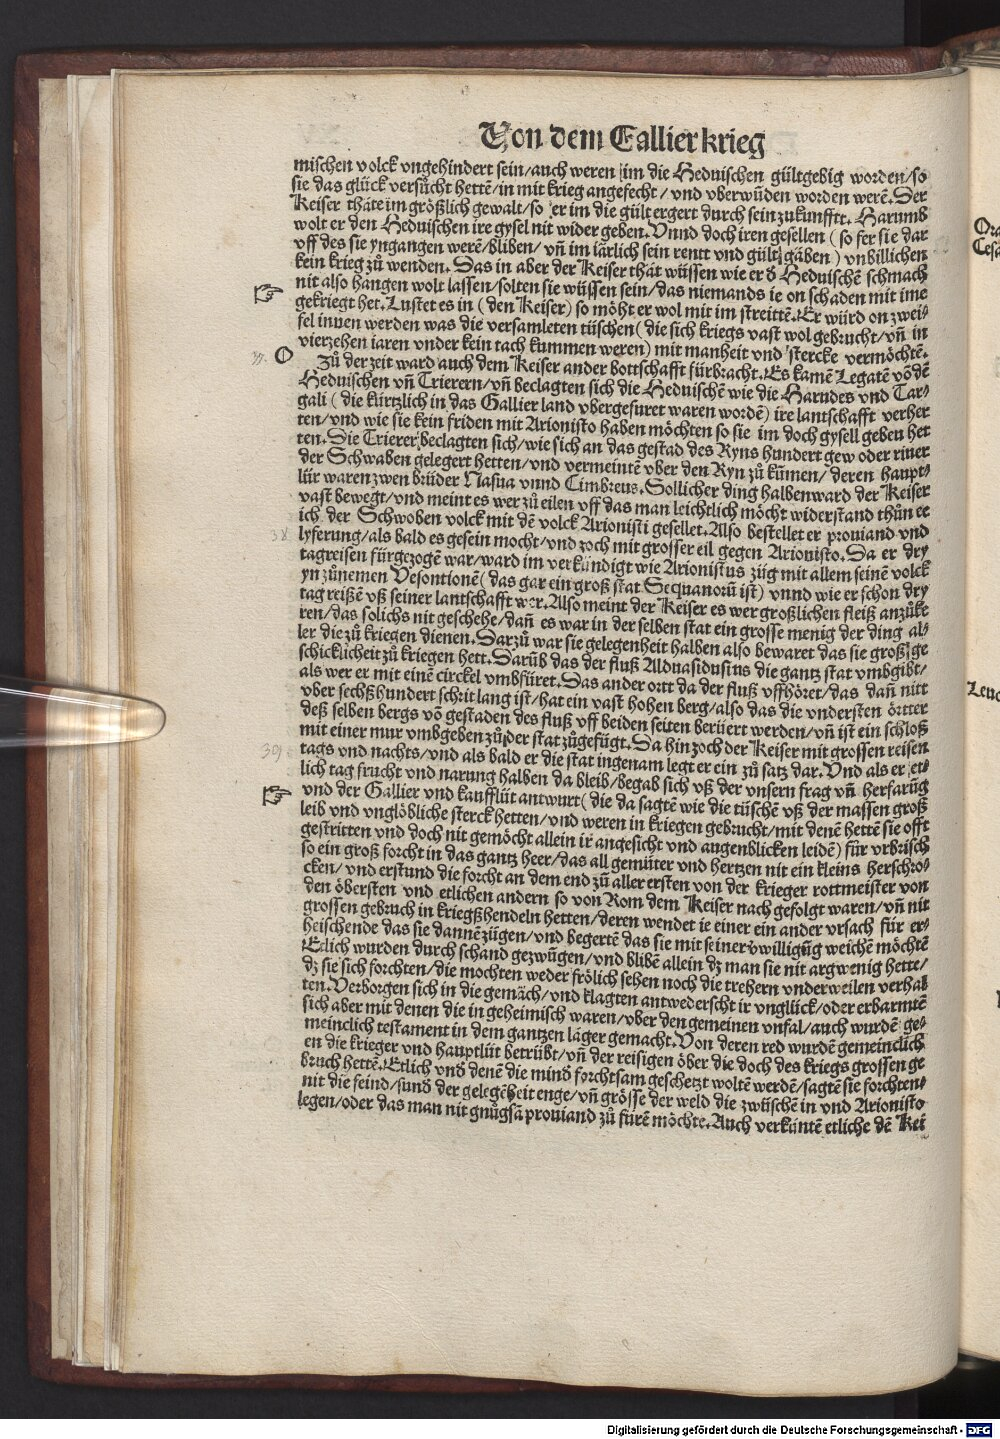 Von dem Gallier krieg
mischen volck vngehindert sein/auch weren im die Heduischen gültgebig worden/so
sie das glück versůcht hettē/in mit krieg angefecht/vnd vberwūden worden werē. Der
Keiser thäte im größlich gewalt/so er im die gült ergert durch sein zukunfft. Harumb
wolt er den Heduischen ire gysel nit wider geben. Vnnd doch iren gesellen (so fer sie dar
vff des sie yngangen werē/bliben/vñ im iärlich sein rentt vnd gült gäben) vnbillichen
kein krieg zů wenden. Das in aber der Keiser thät wüssen wie er d Heduischē schmach
nit also hangen wolt lassen/solten sie wüssen sein/das niemands ie on schaden mit ime
gekriegt het. Lustet es in (den Keiser) so möht er wol mit im streittē. Er würd on zwei-
fel innen werden was die versamleten tüschen (die sich kriegs vast wol gebrucht/vñ in
vierzehen iaren vnder kein tach kummen weren) mit manheit vnd stercke vermöchtē.
Zů der zeit ward auch dem Keiser ander bottschafft fürbracht. Es kamē Legatē vō dē
Heduischen vñ Trierern/vñ beclagten sich die Heduischē wie die Harudes vnd Tar-
gali (die kürtzlich in das Gallier land vbergefuret waren wordē) ire lantschafft verher
ten/vnd wie sie kein friden mit Arionisto haben möchten so sie im doch gysell geben het
ten. Die Trierer beclagten sich/wie sich an das gestad des Ryns hundert gew oder riuer
der Schwaben gelegert hetten/vnd vermeintē vber den Ryn zů kūmen/deren haupt-
lür waren zwen brüder Nasua vnnd Cimbreus. Sollicher ding halben ward der Keiser
vast bewegt/vnd meint es wer zů eilen vff das man leichtlich möcht widerstand thůn ee
ich der Schwoben volck mit dē volck Arionisti gesellet. Also bestellet er prouiand vnd
lyferung/als bald es gesein mocht/vnd zoch mit grosser eil gegen Arionisto. Da er dry
tagreisen fürgezogē war/ward im verkündigt wie Arionistus züg mit allem seinē volck
yn zůnemen Vesontionē (das gar ein groß stat Sequanorū ist) vnnd wie er schon dry
tag reißē vß seiner lantschafft wer. Also meint der Keiser es wer großlichen fleiß anzůke
ren/das solichs nit geschehe/dañ es war in der selben stat ein grosse menig der ding al-
ler die zů kriegen dienen. Darzů war sie gelegenheit halben also bewaret das sie groß ge
schicklicheit zů kriegen hett. Darūb das der fluß Alduasidusius die gantz stat vmbgibt/
als wer er mit einē circkel vmbfüret. Das ander ortt da der fluß vffhöret/das dañ nitt
vber sechßhundert schrit lang ist/hat ein vast hohen berg/also das die vndersten örtter
deß selben bergs vō gestaden des fluß vff beiden seiten berüert werden/vñ ist ein schloß
mit einer mur vmbgeben zů der stat zůgefügt. Da hin zoch der Keiser mit grossen reisen
tags vnd nachts/vnd als bald er die stat ingenam legt er ein zů satz dar. Vnd als er et-
lich tag frucht vnd narung halben da bleib/begab sich vß der vnsern frag vñ herfarūg
vnd der Gallier vnd kaufflüt antwurt (die da sagtē wie die tüschē vß der massen groß
leib vnd vnglöbliche sterck hetten/vnd weren in kriegen gebrucht/mit denē hettē sie offt
gestritten vnd doch nit gemöcht allein ir angesicht vnd augenblicken leidē) für vrbrisch
so ein groß forcht in das gantz heer/das all gemüter vnd hertzen nit ein kleins herschro-
cken/vnd erstund die forcht an dem end zů aller ersten von der krieger rottmeister von
den öbersten vnd etlichen andern so von Rom dem Keiser nach gefolgt waren/vñ nit
grossen gebruch in kriegßhendeln hetten/deren wendet ie einer ein ander vrsach für er-
heischende das sie dannē zügen/vnd begertē das sie mit seiner bwilligūg weichē möchtē
Etlich wurden durch schand gezwūgen/vnd blibē allein dz man sie nit argwenig hette/
dz sie sich forchten/die mochten weder frölich sehen noch die trehern vnderweilen verhal
ten. Verborgen sich in die gemäch/vnd klagten antwederscht ir vnglück/oder erbarmtē
sich aber mit denen die in geheimisch waren/vber den gemeinen vnfal/auch wurdē ge-
meinclich testament in dem gantzen läger gemacht. Von deren red wurdē gemeinclich
en die krieger vnd hauptlüt betrübt/vñ der reisigen öber die doch des kriegs grossen ge
bruch hettē. Etlich vnd denē die mind forchtsam geschetzt woltē werdē/sagtē sie forchten
nit die feind/sund der gelegēheit enge/vñ grösse der weld die zwüschē in vnd Arionisto
legen/oder das man nit gnůgsā prouiand zů fürē möchte. Auch verkuntē etliche dē Kei
38
39
Ora
Cesa
Digitalisierung gefördert durch die Deutsche Forschungsgemeinschaft - DFG